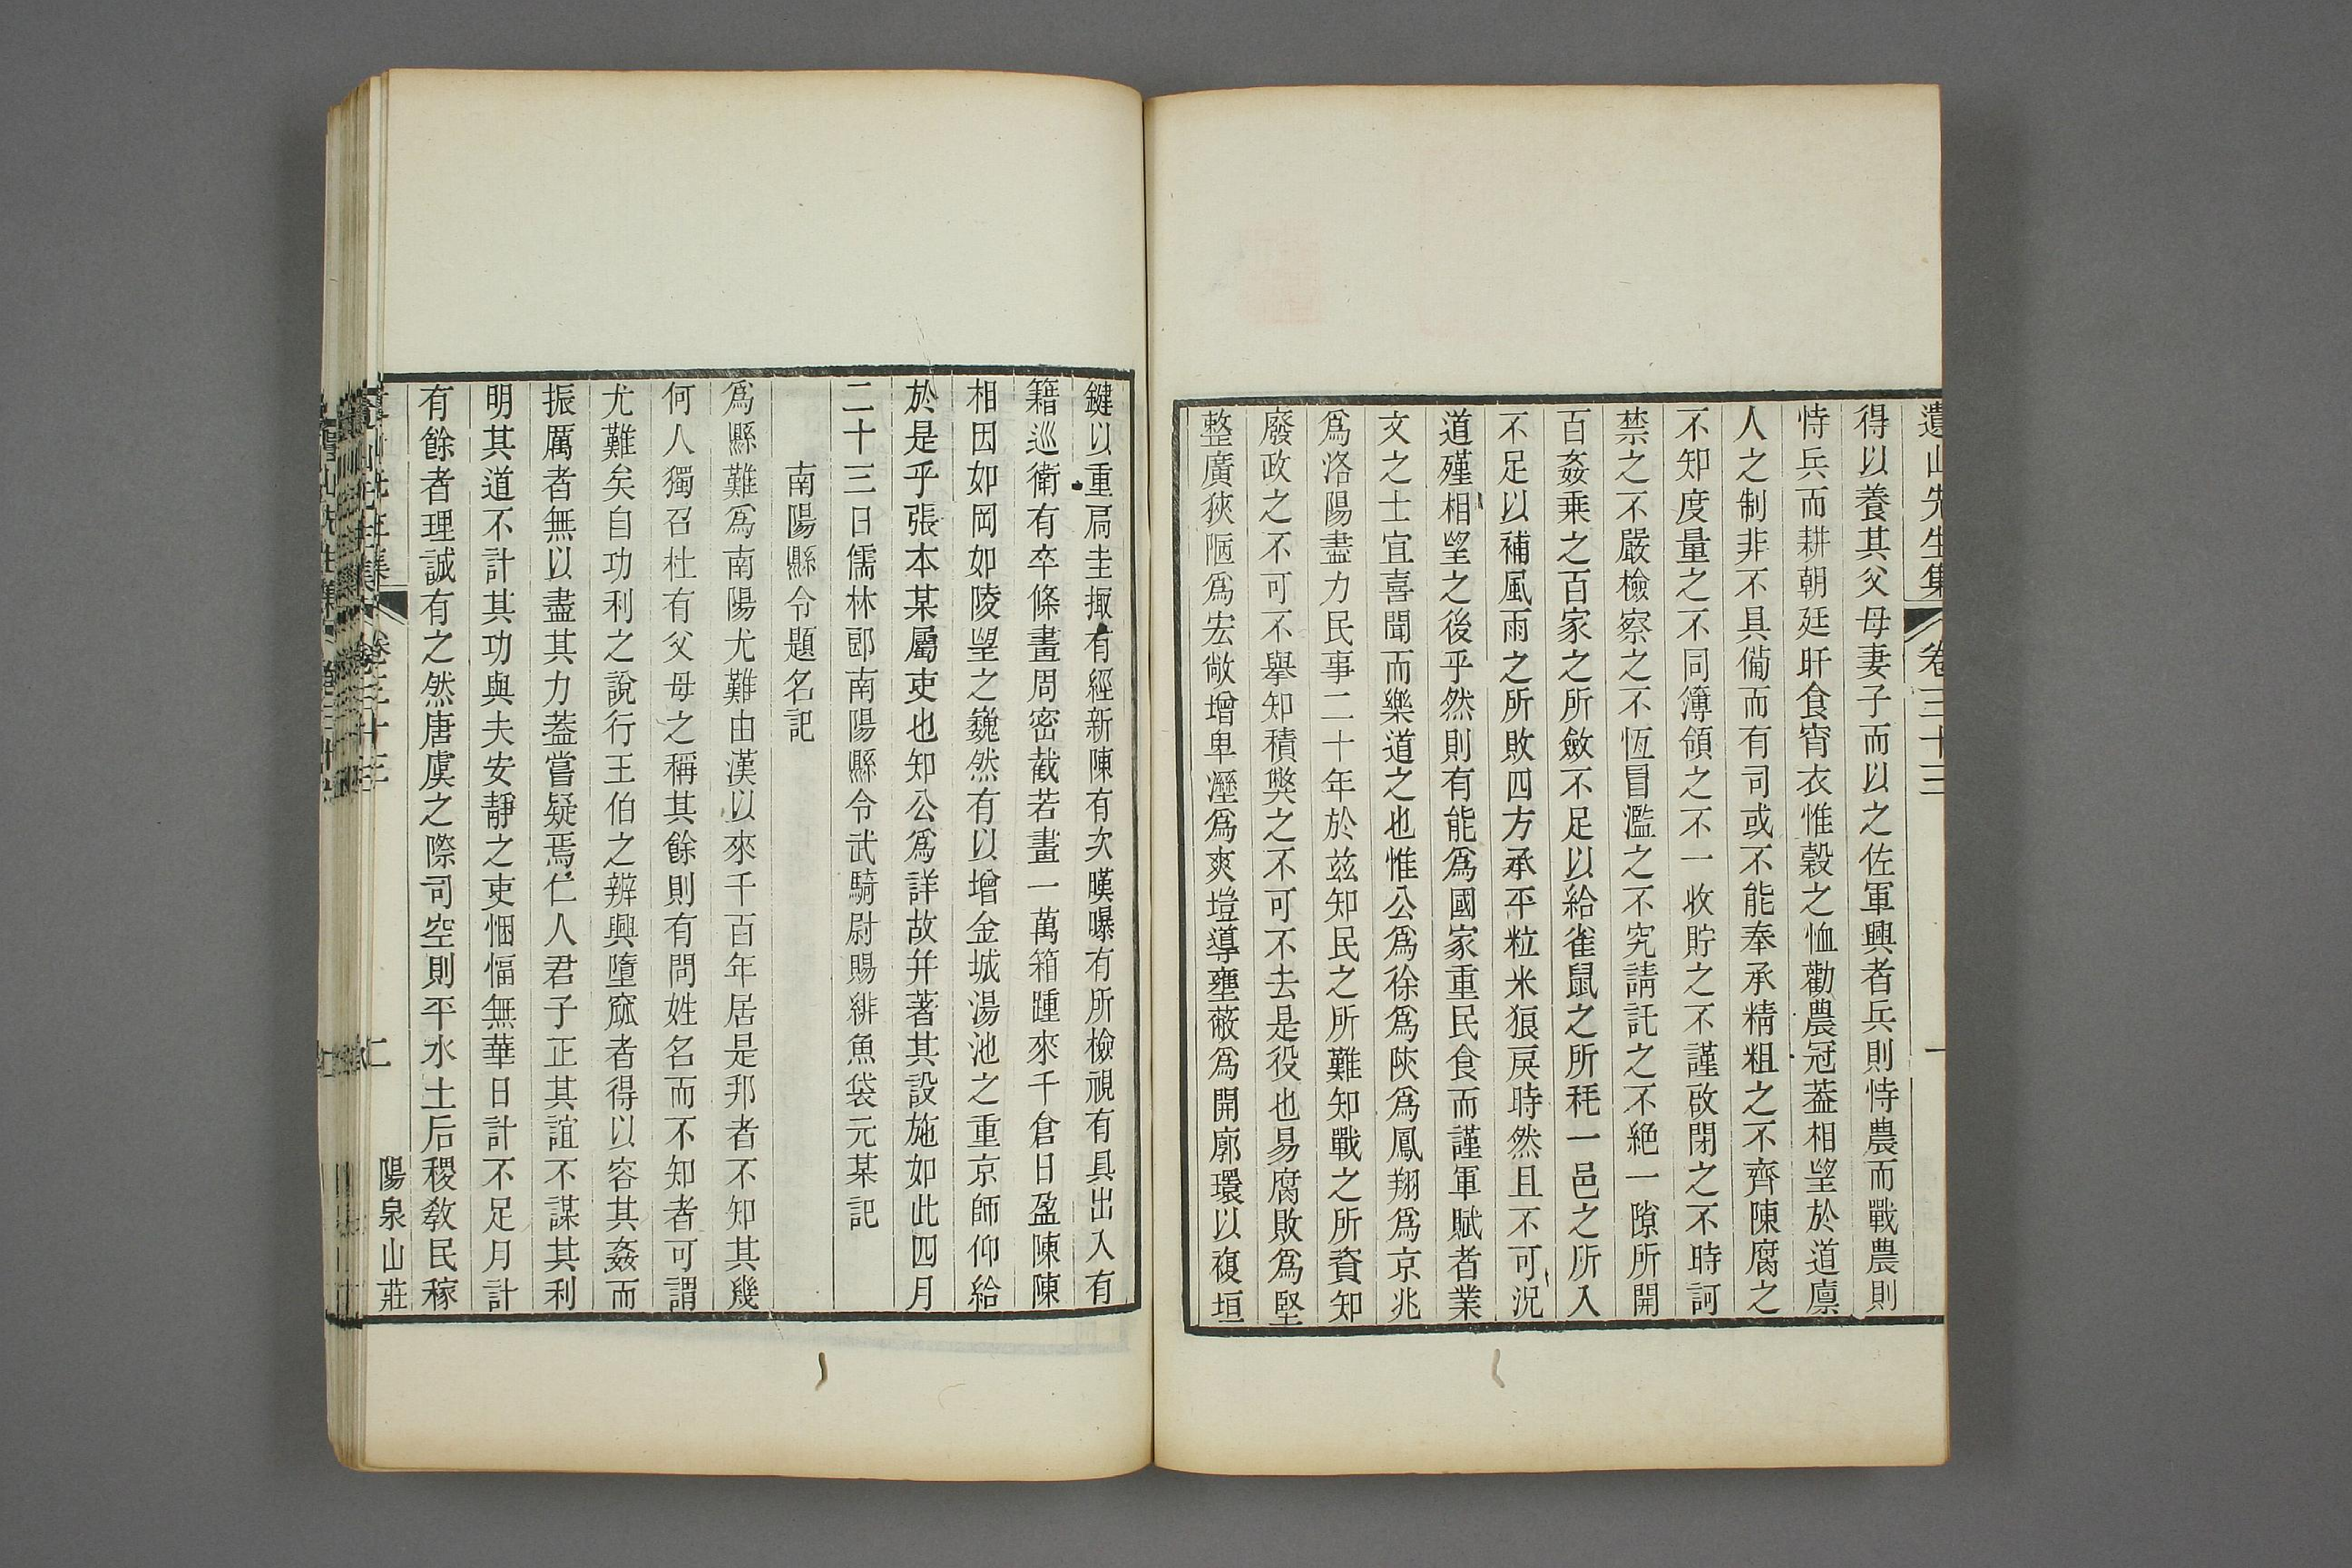 遺山先生集 卷三十三 一
得以養其父母妻子而以之佐軍興者兵則恃農而戰農則
恃兵而耕朝廷旰食宵衣惟穀之恤勸農冠葢相望於道廪
人之制非不具備而有司或不能奉承精粗之不齊陳腐之
不知度量之不同簿領之不一收貯之不謹啟閉之不時訶
禁之不嚴檢察之不恆冒濫之不究請託之不絕一隙所開
百姦乘之百家之所斂不足以給雀鼠之所秏一邑之所入
不足以補風雨之所敗四方承平粒米狼戾時然且不可況
道殣相望之後乎然則有能爲國家重民食而謹軍賦者業
文之士宜喜聞而樂道之也惟公爲徐爲陝爲鳳翔爲京兆
爲洛陽盡力民事二十年於茲知民之所難知戰之所資知
廢政之不可不舉知積獘之不可不去是役也易腐敗爲堅
整廣狹陋爲宏敞增卑溼爲爽塏導壅蔽爲開廓環以複垣
鍵以重扃圭撮有經新陳有次暵曝有所檢視有具出入有
籍巡衛有卒條畫周密截若畫一萬箱踵來千倉日盈陳陳
相因如岡如陵望之巍然有以增金城湯池之重京師仰給
於是乎張本某屬吏也知公爲詳故幷著其設施如此四月
二十三日儒林郎南陽縣令武騎尉賜緋魚袋元某記
南陽縣令題名記
爲縣難爲南陽尤難由漢以來千百年居是邦者不知其幾
何人獨召杜有父母之稱其餘則有問姓名而不知者可謂
尤難矣自功利之說行王伯之辨興墮窳者得以容其姦而
振厲者無以盡其力葢嘗疑焉仁人君子正其誼不謀其利
明其道不計其功與夫安靜之吏悃愊無華日計不足月計
有餘者理誠有之然唐虞之際司空則平水土后稷敎民稼
卷三十三 二 陽泉山莊